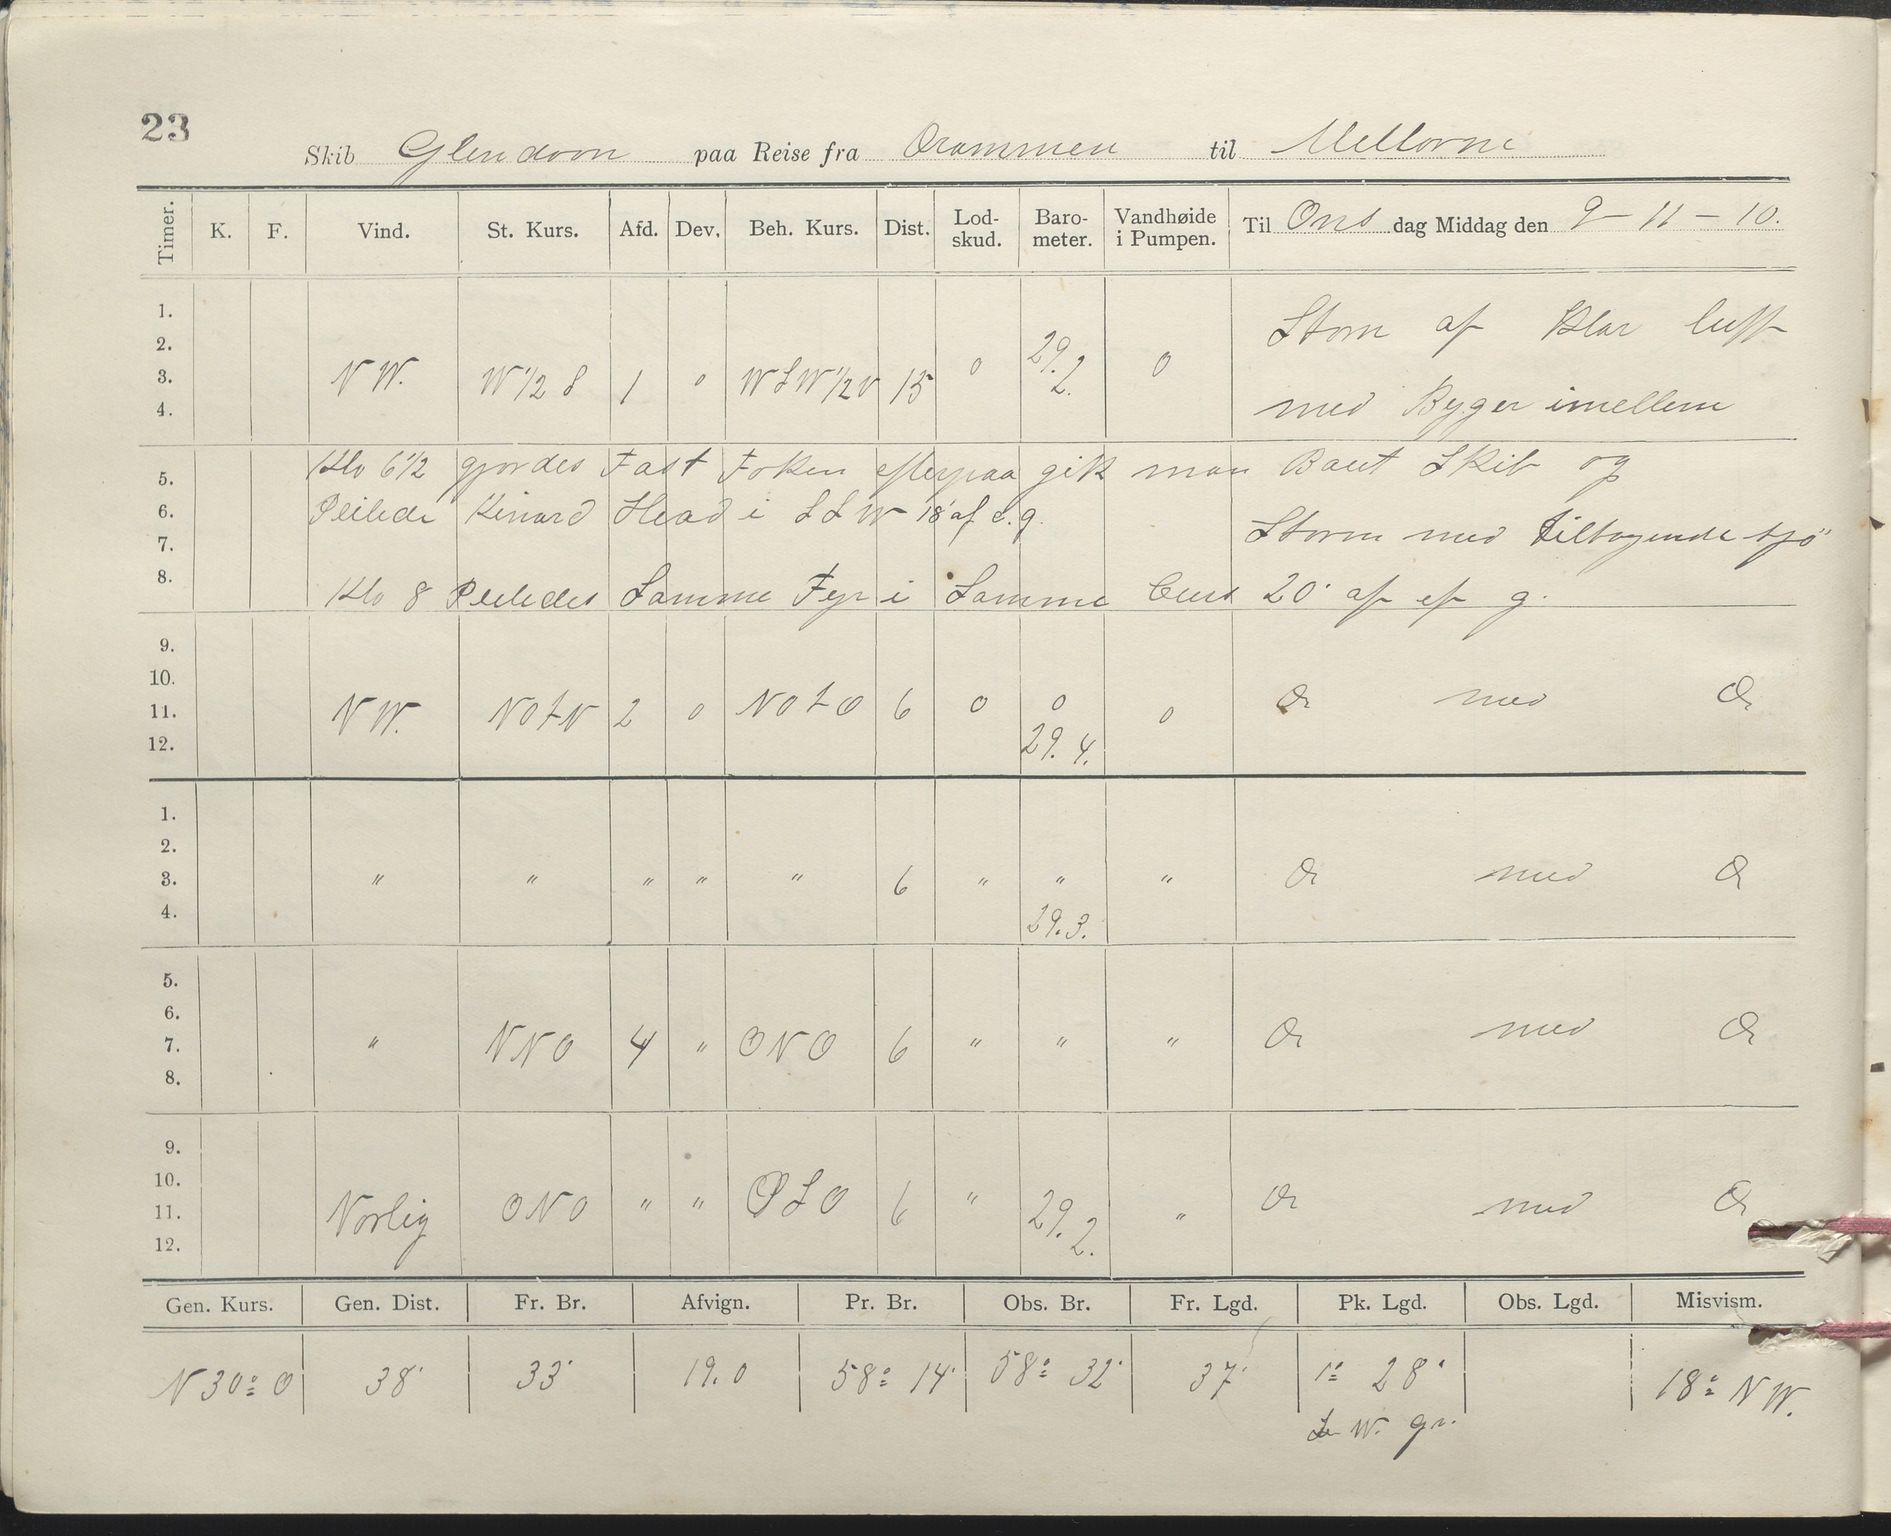 23
Skib Glendoon paa Reise fra Drammen til Melborne
Timer. K. F. Vind. St. Kurs. Afd. Dev. Beh. Kurs. Dist. Lod-skud. Baro-meter. Vandhøide i Pumpen. Til Ons dag Middag den 9 - 11 - 10.
1.
2.
3. NW. W 1/2 S 1 0 WSW 1/2 V 15 0 29.2. 0 Storm af Klar luft
4. med Byger imellem
5. Klo 6 1/2 gjordes Fast Foken efterpaa gik man Baut Skib og
6. Peilede Kinard Head i SSW 18' af d. g.
7. Storm med tiltagende sjö
8. Klo 8 Peiledes Samme Fyr i Samme Curs 20' af ef g.
9.
10.
11. NW. NOtN 2 0 NOtO 6 0 0 0 Do med Do
12. 29.4.
1.
2.
3. " " " " " 6 " " " Do med Do
4. 29.3.
5.
6.
7. " NNO 4 " ONO 6 " " " Do med Do
8.
9.
10.
11. Norlig ONO " " OSO 6 " 29.2. " Do med Do
12.
Gen. Kurs. Gen. Dist. Fr. Br. Afvign. Pr. Br. Obs. Br. Fr. Lgd. Pk. Lgd. Obs. Lgd. Misvism.
N 30° O 38' 33' 19.0 58° 14' 58° 32' 37' 1° 28' 18° NW.
W. gr.